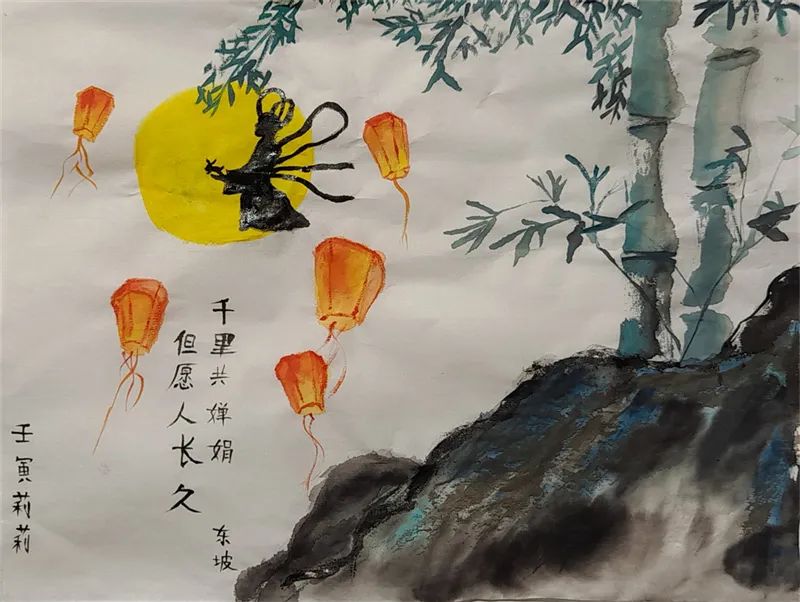 但愿人长久
千里共婵娟
东坡
壬寅莉莉